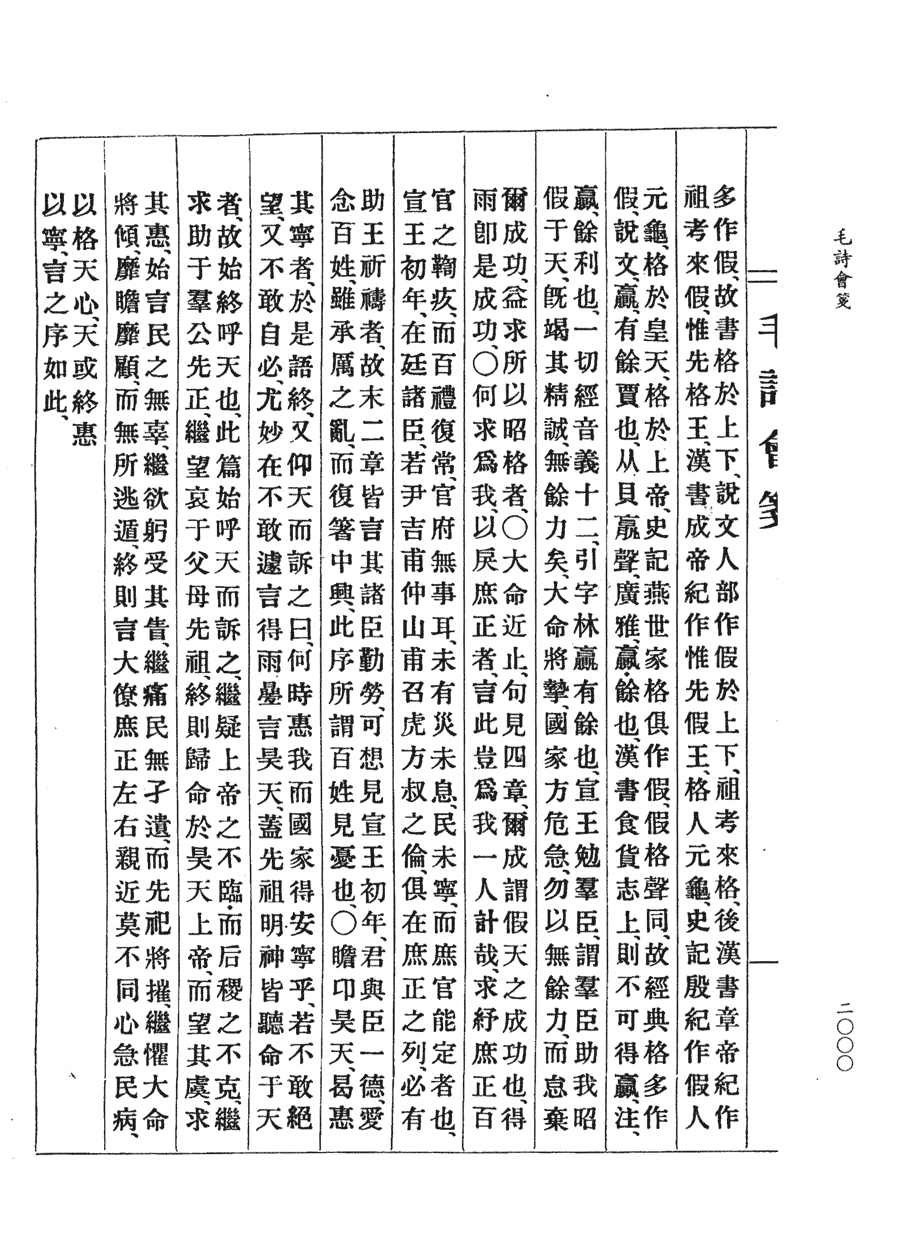 毛詩會箋
二〇〇〇
毛詩會箋
多作假、故書格於上下、說文人部作假於上下、祖考來格、後漢書章帝紀作
祖考來假、惟先格王、漢書成帝紀作惟先假王、格人元龜、史記殷紀作假人
元龜、格於皇天、格於上帝、史記燕世家格俱作假、假格聲同、故經典格多作
假、說文、贏、有餘賈也、从貝𣎆聲、廣雅、贏、餘也、漢書食貨志上、則不可得贏、注、
贏、餘利也、一切經音義十二、引字林贏有餘也、宣王勉羣臣、謂羣臣助我昭
假于天、旣竭其精誠、無餘力矣、大命將摯、國家方危急、勿以無餘力、而怠棄
爾成功、益求所以昭格者、〇大命近止、句見四章、爾成謂假天之成功也、得
雨卽是成功、〇何求爲我、以戾庶正者、言此豈爲我一人計哉、求紓庶正百
官之鞫疚、而百禮復常、官府無事耳、未有災未息、民未寧、而庶官能定者也、
宣王初年、在廷諸臣、若尹吉甫仲山甫召虎方叔之倫、俱在庶正之列、必有
助王祈禱者、故末二章皆言其諸臣勤勞、可想見宣王初年、君與臣一德、愛
念百姓、雖承厲之亂、而復箸中興、此序所謂百姓見憂也、〇瞻卬昊天、曷惠
其寧者、於是語終、又仰天而訴之曰、何時惠我而國家得安寧乎、若不敢絕
望、又不敢自必、尤妙在不敢遽言得雨、曐言昊天、蓋先祖明神皆聽命于天
者、故始終呼天也、此篇始呼天而訴之、繼疑上帝之不臨、而后稷之不克、繼
求助于羣公先正、繼望哀于父母先祖、終則歸命於昊天上帝、而望其虞、求
其惠、始言民之無辜、繼欲躬受其眚、繼痛民無孑遺、而先祀將摧、繼懼大命
將傾、靡瞻靡顧、而無所逃遁、終則言大僚庶正左右親近莫不同心急民病、
以格天心、天或終惠
以寧、言之序如此、